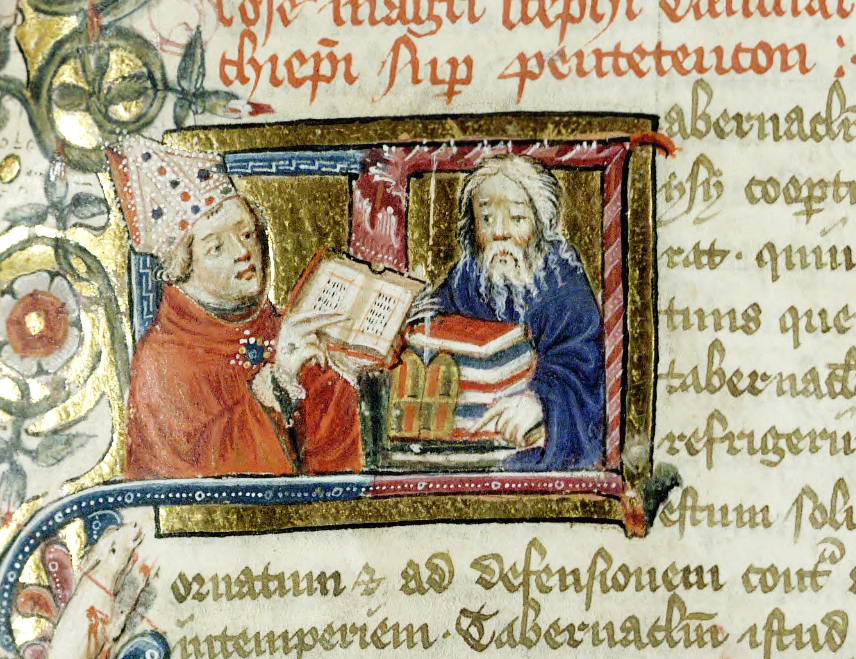 mag̃ri stephi
chiep̃i sup penteteucon
abernaclm̃
ysy coopte
rat. quin
tuns que
tabernacl
refrigeriu
estum soli
ornatum & ad defensionem cont̃
intemperiem. Tabernaclm̃ istud